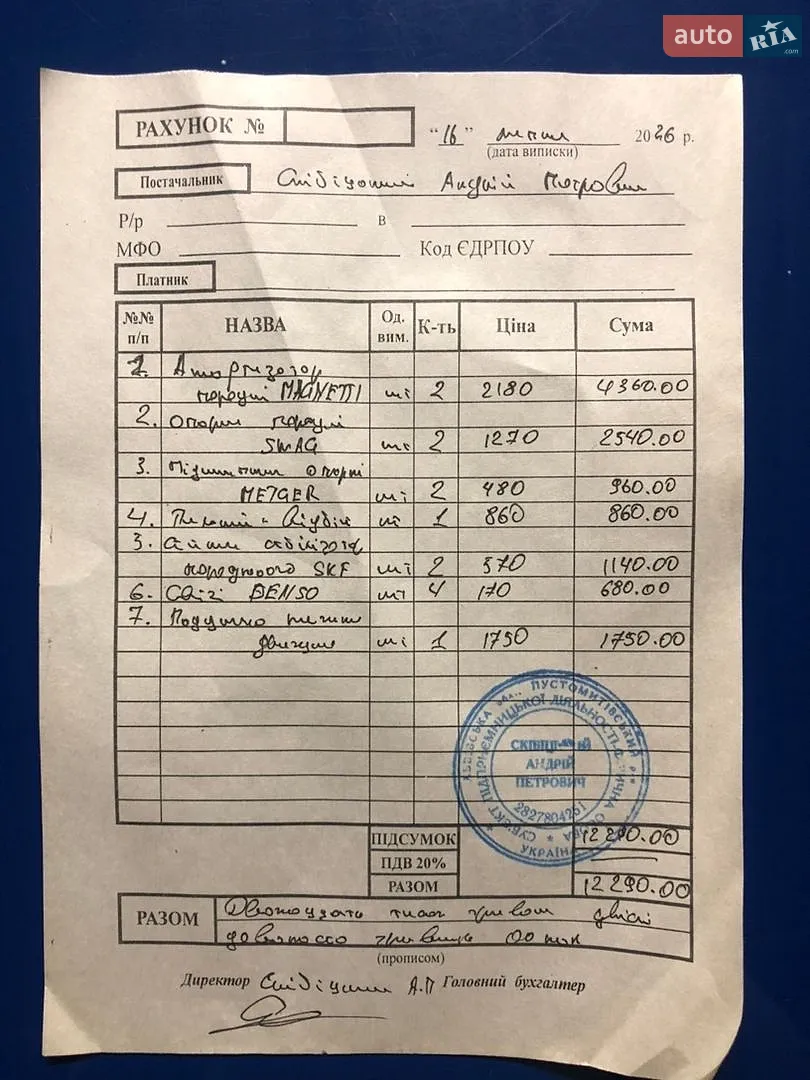 auto RIA.com
РАХУНОК №
"16" липня 2026 р.
(дата виписки)
Постачальник Скібіцький Андрій Петрович
Р/р в
МФО Код ЄДРПОУ
Платник
№№ п/п НАЗВА Од. вим. К-ть Ціна Сума
1. Амортизатор
передні MAGNETTI шт 2 2180 4360.00
2. Опори передні
SWAG шт 2 1270 2540.00
3. Підшипники опорні
METGER шт 2 480 960.00
4. шт 1 860 860.00
5. стабілізатора
переднього SKF шт 2 570 1140.00
6. Свічі BENSO шт 4 170 680.00
7. Подушка
двигуна шт 1 1750 1750.00
ЛЬВІВСЬКА ПУСТОМИТІВСЬКИЙ
СУБ'ЄКТ ПІДПРИЄМНИЦЬКОЇ ДІЯЛЬНОСТІ
АНДРІЙ
ПЕТРОВИЧ
2827804251
* УКРАЇНА *
ПІДСУМОК 12290.00
ПДВ 20%
РАЗОМ 12290.00
РАЗОМ Дванадцять тисяч гривень двісті
девяносто гривень 00 коп
(прописом)
Директор Скібіцький А.П Головний бухгалтер